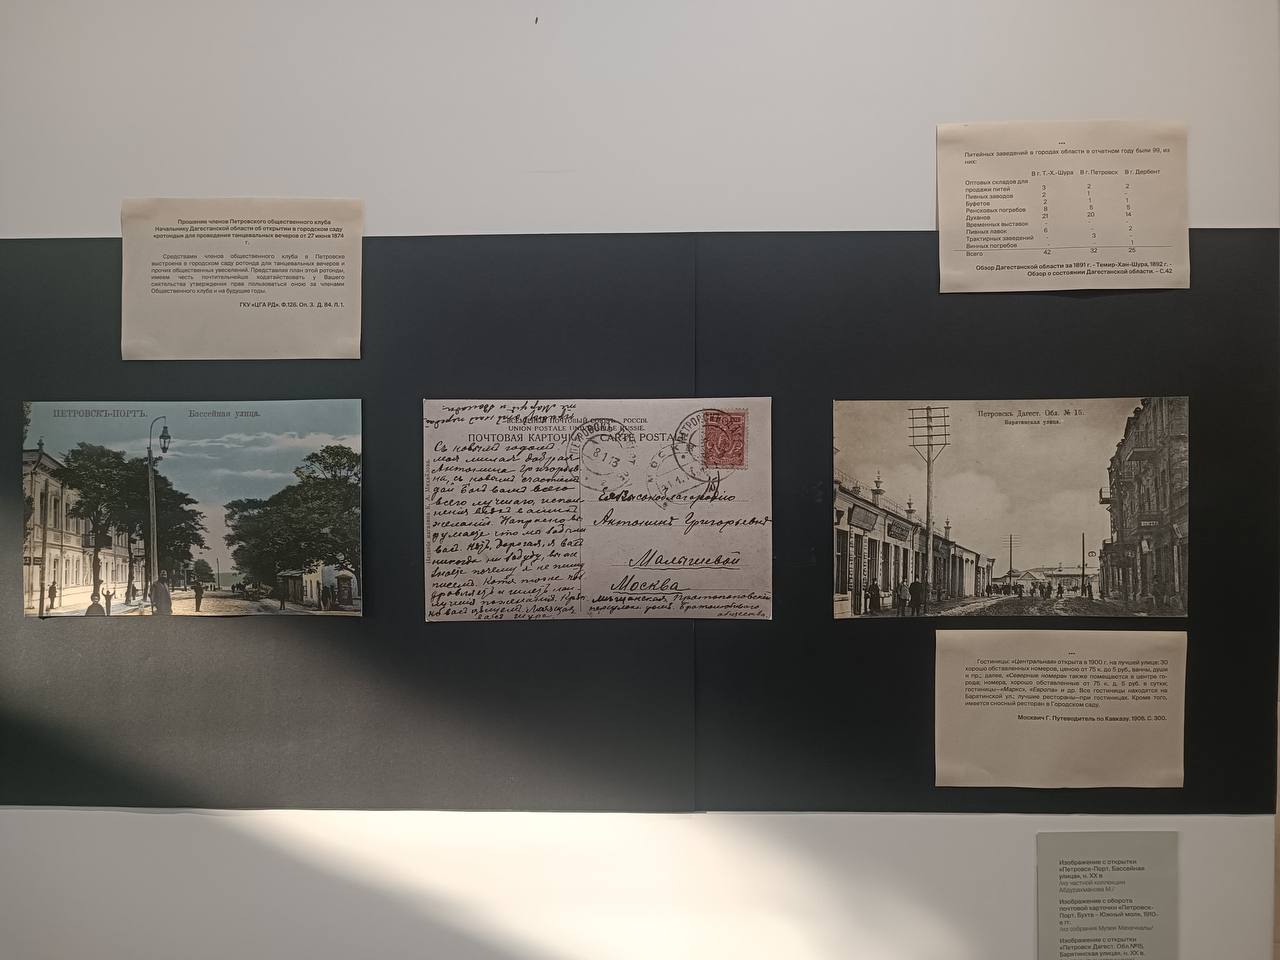 Прошение членов Петровского общественного клуба
Начальнику Дагестанской области об открытии в городском саду
«ротонды» для проведения танцевальных вечеров от 27 июня 1874
г.
Средствами членов общественного клуба в Петровске
выстроена в городском саду ротонда для танцевальных вечеров и
прочих общественных увеселений. Представляя план этой ротонды,
имеем честь почтительнейше ходатайствовать у Вашего
сиятельства утверждения прав пользоваться оною за членами
Общественного клуба и на будущие годы.
ГКУ «ЦГА РД». Ф.126. Оп. 3. Д. 84. Л. 1.
***
Питейных заведений в городах области в отчетном году были 99, из
них:
В г. Т.-Х.-Шура В г. Петровск В г. Дербент
Оптовых складов для
продажи питей 3 2 2
Пивных заводов 2 1 -
Буфетов 2 1 1
Ренсковых погребов 8 5 5
Духанов 21 20 14
Временных выставок - - -
Пивных лавок 6 - 2
Трактирных заведений - 3 -
Винных погребов - - 1
Всего 42 32 25
Обзор Дагестанской области за 1891 г. - Темир-Хан-Шура, 1892 г. -
Обзор о состоянии Дагестанской области. – С.42
ПЕТРОВСКЪ-ПОРТЪ. Бассейная улица.
ВСЕМІРНЫЙ ПОЧТОВЫЙ СОЮЗЪ. РОССІЯ.
UNION POSTALE UNIVERSELLE RUSSIE.
ПОЧТОВАЯ КАРТОЧКА CARTE POSTALE
8 1 13
Съ новымъ годомъ
моя милая добрая
Антонина Григорьев
на, съ новымъ счастьемъ
дай Богъ вамъ всего
всего лучшаго, испол
нения
желаний. Напрасно вы
думаете что
васъ. Нѣтъ, дорогая, я васъ
никогда не забуду, вы
знаете почему я не пишу
писемъ. Хотя
лучшія пожеланія.
Ея Высокоблагородію
Антонинѣ Григорьевнѣ
Малышевой
Москва
Мѣщанская Протопоповскій
переулок домъ Братолюбиваго
общества.
Петровскъ Дагест. Обл. № 15.
Барятинская улица.
***
Гостиницы: «Центральная» открыта в 1900 г. на лучшей улице: 30
хорошо обставленных номеров, ценою от 75 к. до 5 руб., ванны, души
и пр.; далее, «Северные номера» также помещаются в центре го-
рода; номера, хорошо обставленные от 75 к. д. 5 руб. в сутки;
гостиницы—«Маркс», «Европа» и др. Все гостиницы находятся на
Барятинской ул.; лучшие рестораны—при гостиницах. Кроме того,
имеется сносный ресторан в Городском саду.
Москвич Г. Путеводитель по Кавказу. 1906. С. 300.
Изображение с открытки
«Петровск-Порт. Бассейная
улица», н. XX в
/из частной коллекции
Абдурахманова М./
Изображение с оборота
почтовой карточки «Петровск-
Порт. Бухта - Южный мол», 1910-
е гг.
/из собрания Музея Махачкалы/
Изображение с открытки
«Петровск Дагест. Обл.№15.
Барятинская улица», н. XX в.